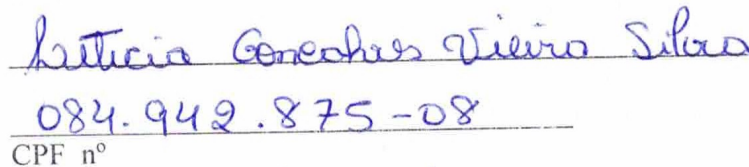 Letticia Goncalves Vieira Silva
084.942.875-08
CPF nº